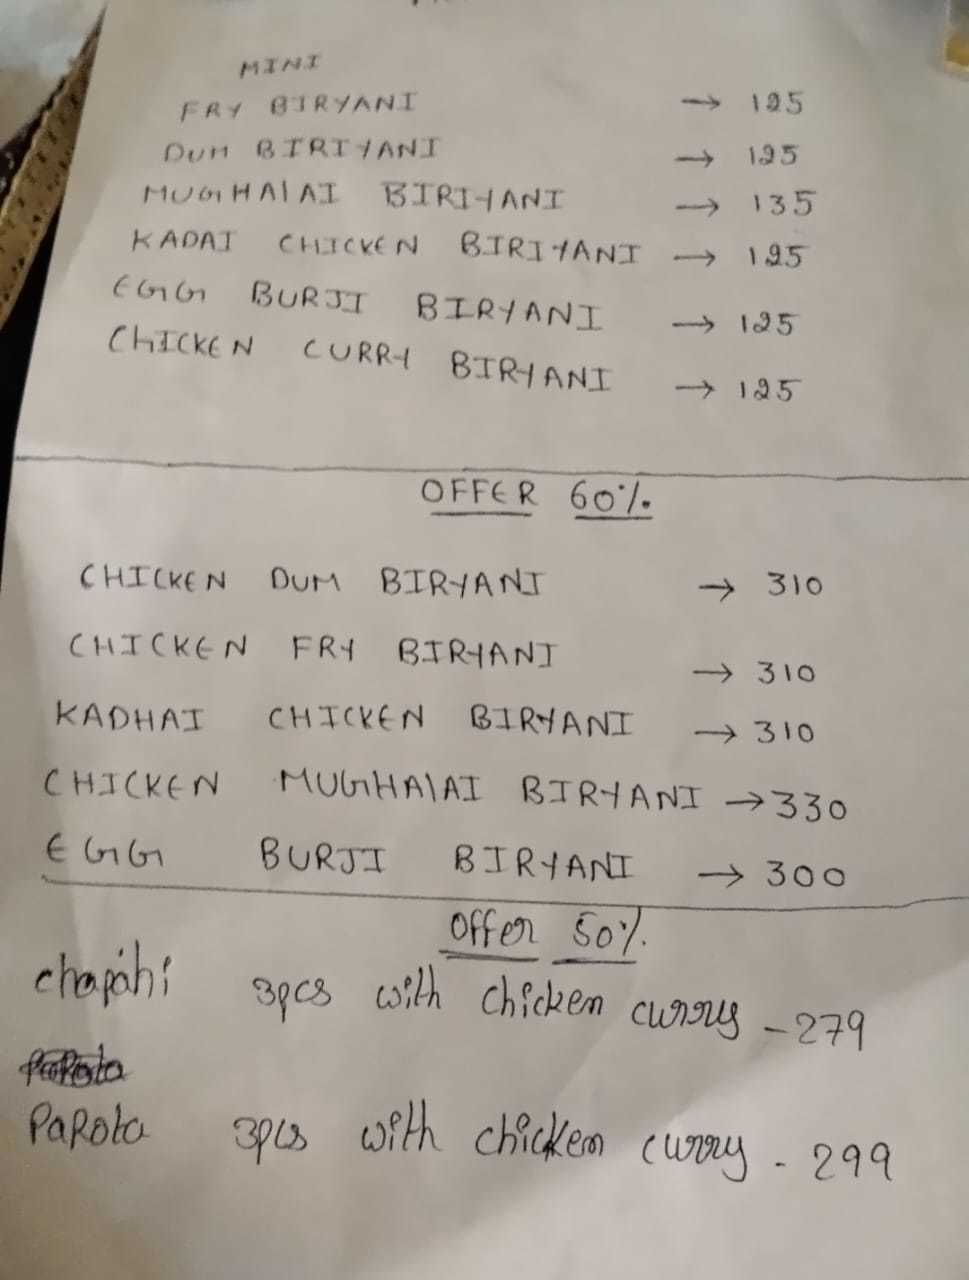 MINI
FRY BIRYANI → 125
DUM BIRIYANI → 125
MUGHALAI BIRIYANI → 135
KADAI CHICKEN BIRIYANI → 125
EGG BURJI BIRYANI → 125
CHICKEN CURRY BIRYANI → 125
OFFER 60%
CHICKEN DUM BIRYANI → 310
CHICKEN FRY BIRYANI → 310
KADHAI CHICKEN BIRYANI → 310
CHICKEN MUGHALAI BIRYANI → 330
EGG BURJI BIRYANI → 300
Offer 50%
chapathi 3pcs with chicken curry - 279
Parota 3pcs with chicken curry - 299